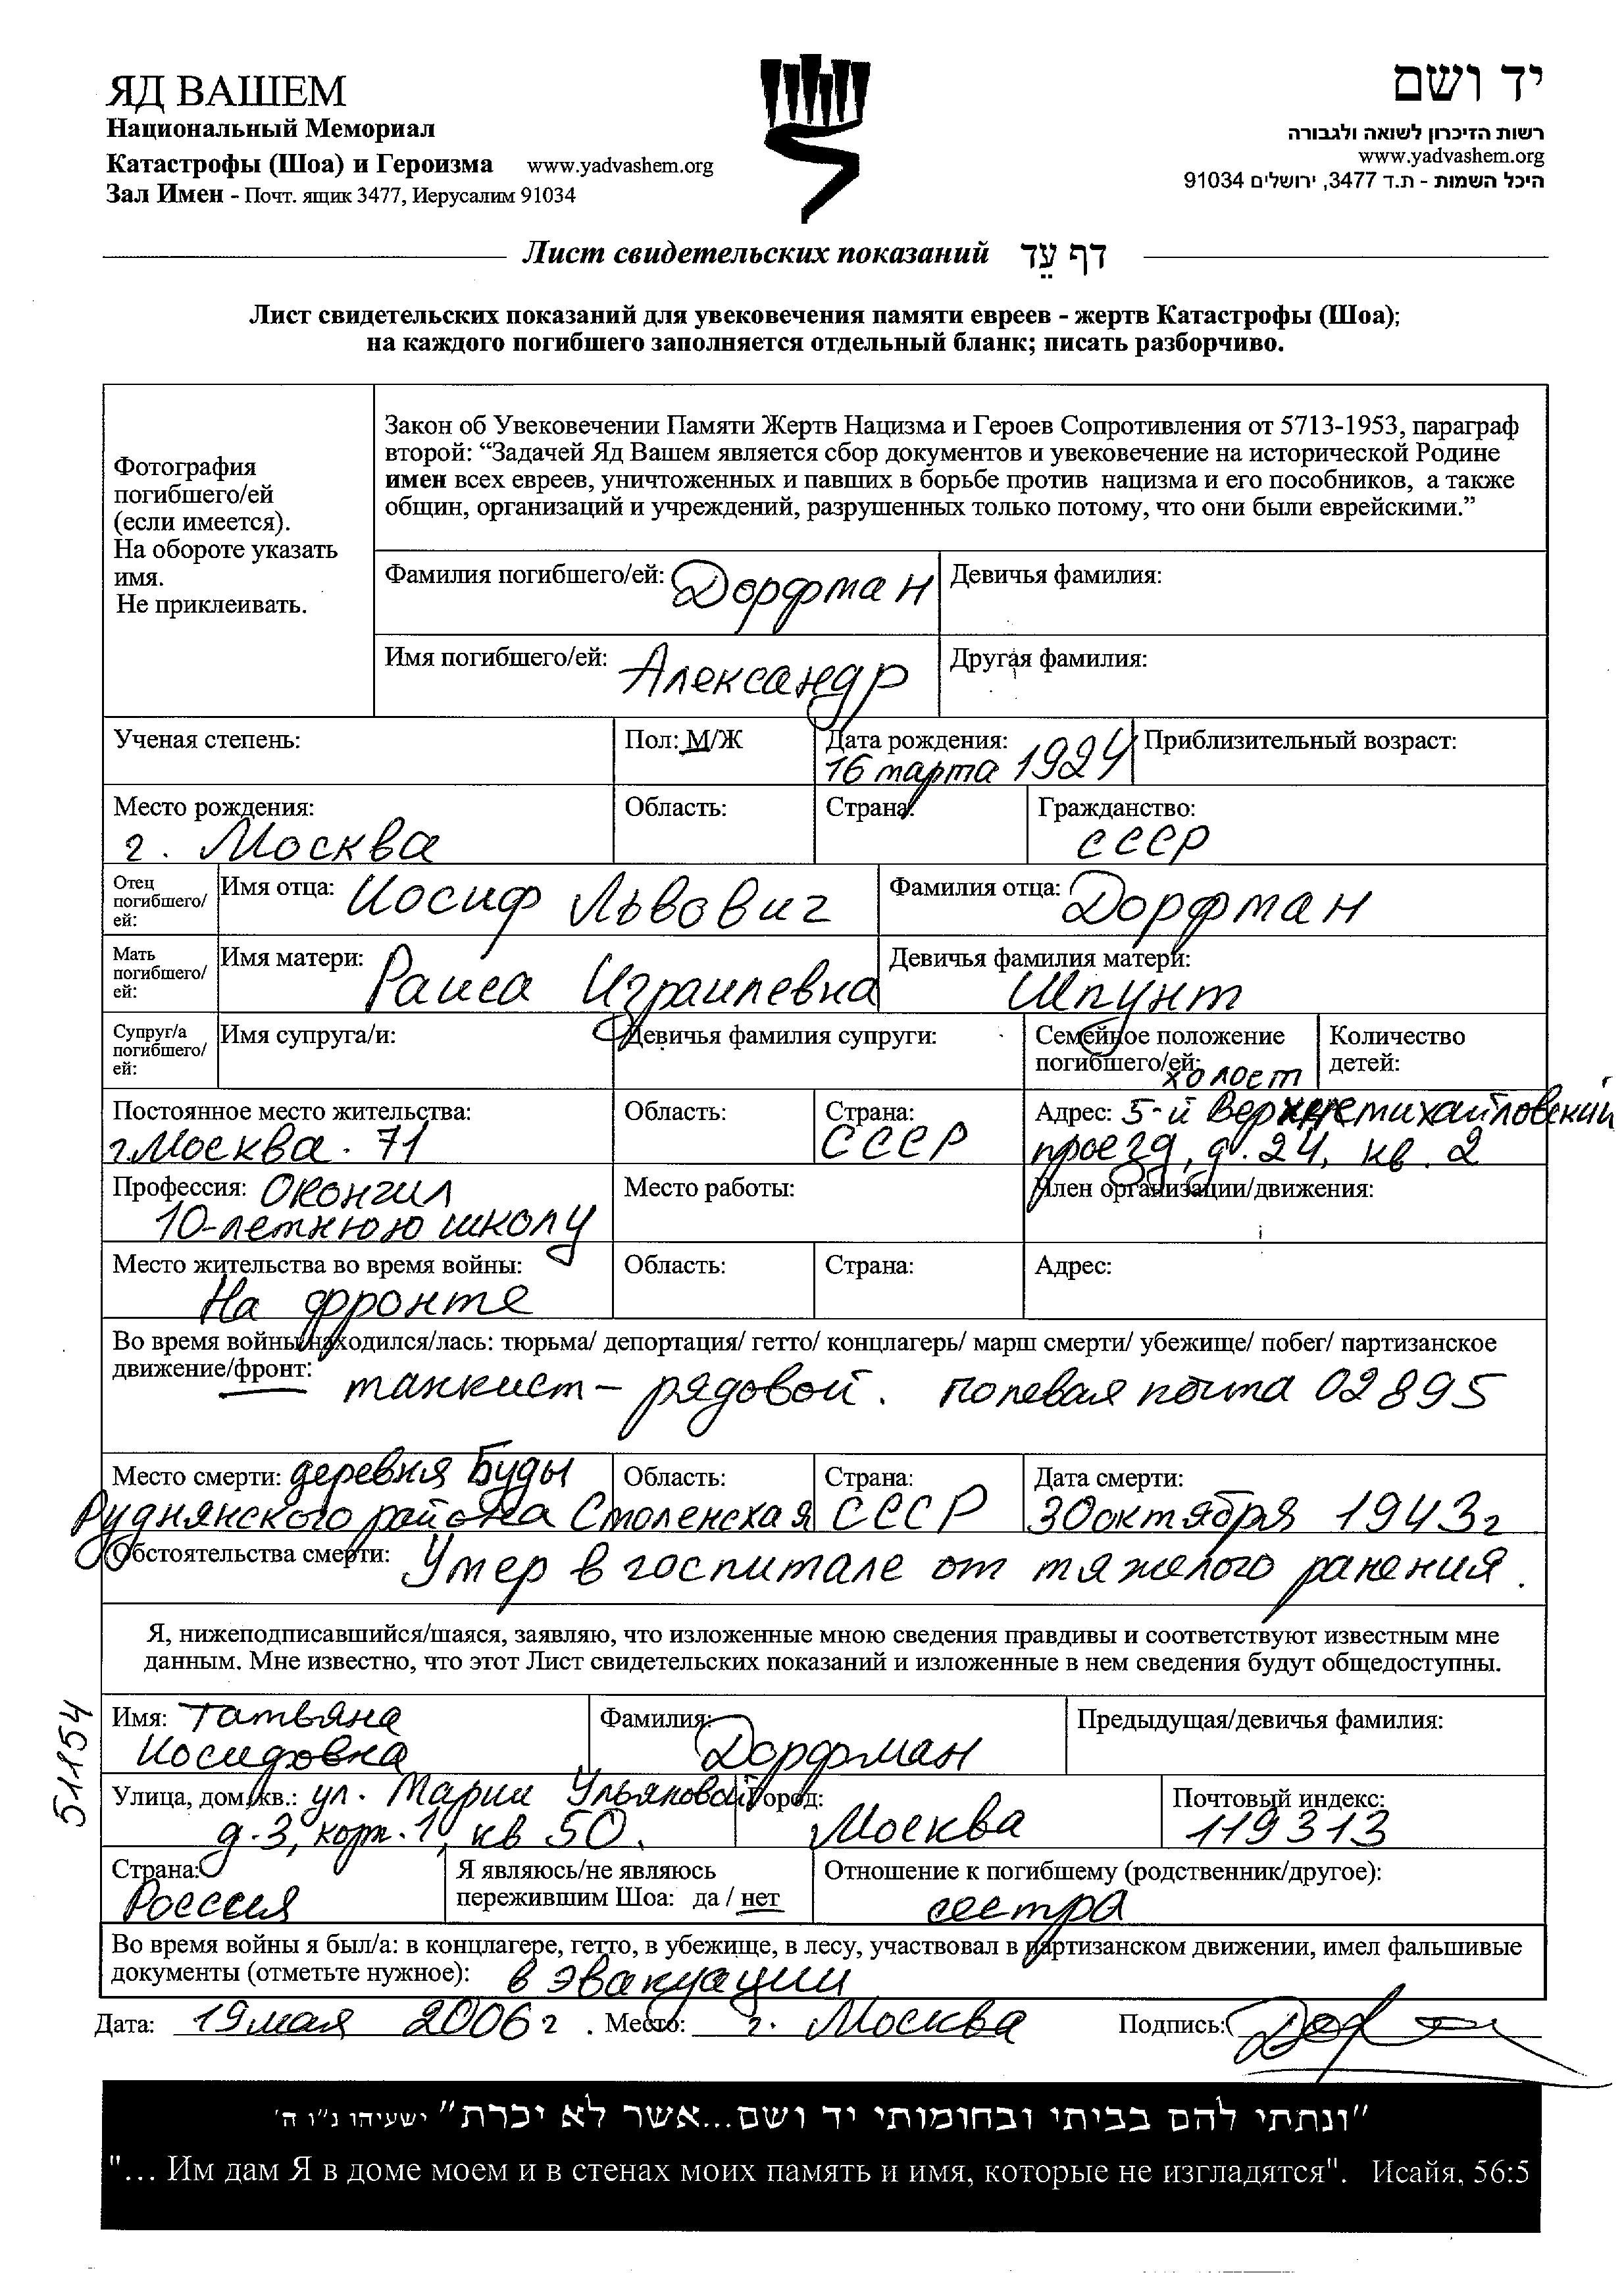 ЯД ВАШЕМ
Национальный Мемориал
Катастрофы (Шоа) и Героизма www.yadvashem.org
Зал Имен - Почт. ящик 3477, Иерусалим 91034
יד ושם
רשות הזיכרון לשואה ולגבורה
www.yadvashem.org
היכל השמות - ת.ד 3477, ירושלים 91034
Лист свидетельских показаний דף עֵד
Лист свидетельских показаний для увековечения памяти евреев - жертв Катастрофы (Шоа);
на каждого погибшего заполняется отдельный бланк; писать разборчиво.
Фотография
погибшего/ей
(если имеется).
На обороте указать
имя.
Не приклеивать.
Закон об Увековечении Памяти Жертв Нацизма и Героев Сопротивления от 5713-1953, параграф
второй: “Задачей Яд Вашем является сбор документов и увековечение на исторической Родине
имен всех евреев, уничтоженных и павших в борьбе против нацизма и его пособников, а также
общин, организаций и учреждений, разрушенных только потому, что они были еврейскими.”
Фамилия погибшего/ей: Дорфман Девичья фамилия:
Имя погибшего/ей: Александр Другая фамилия:
Ученая степень: Пол: М/Ж Дата рождения: Приблизительный возраст:
16 марта 1924
Место рождения: Область: Страна: Гражданство:
г. Москва СССР
Отец
погибшего/
ей:
Имя отца: Иосиф Львович Фамилия отца: Дорфман
Мать
погибшего/
ей:
Имя матери: Раиса Израилевна Девичья фамилия матери:
Шпунт
Супруг/а
погибшего/
ей:
Имя супруга/и: Девичья фамилия супруги: Семейное положение
погибшего/ей: холост
Количество
детей:
Постоянное место жительства: Область: Страна: Адрес: 5-й Верхнемихайловский
г.Москва. 71 СССР проезд, д. 24, кв. 2
Профессия: Окончил Место работы: Член организации/движения:
10-летнюю школу
Место жительства во время войны: Область: Страна: Адрес:
На фронте
Во время войны находился/лась: тюрьма/ депортация/ гетто/ концлагерь/ марш смерти/ убежище/ побег/ партизанское
движение/фронт: танкист - рядовой. полевая почта 02895
Место смерти: деревня Буды Область: Страна: Дата смерти:
Руднянского района Смоленская СССР 30 октября 1943 г
Обстоятельства смерти: Умер в госпитале от тяжелого ранения.
Я, нижеподписавшийся/шаяся, заявляю, что изложенные мною сведения правдивы и соответствуют известным мне
данным. Мне известно, что этот Лист свидетельских показаний и изложенные в нем сведения будут общедоступны.
51154
Имя: Татьяна Фамилия: Предыдущая/девичья фамилия:
Иосифовна Дорфман
Улица, дом, кв.: ул. Марии Ульяновой Город: Почтовый индекс:
д. 3, корп. 1, кв 50. Москва 119313
Страна: Я являюсь/не являюсь Отношение к погибшему (родственник/другое):
Россия пережившим Шоа: да / нет сестра
Во время войны я был/а: в концлагере, гетто, в убежище, в лесу, участвовал в партизанском движении, имел фальшивые
документы (отметьте нужное): в эвакуации
Дата: 19 мая 2006 г. Место: г. Москва Подпись:
"ונתתי להם בביתי ובחומותי יד ושם...אשר לא יכרת" ישעיהו נ"ו ה'
"... Им дам Я в доме моем и в стенах моих память и имя, которые не изгладятся". Исайя, 56:5